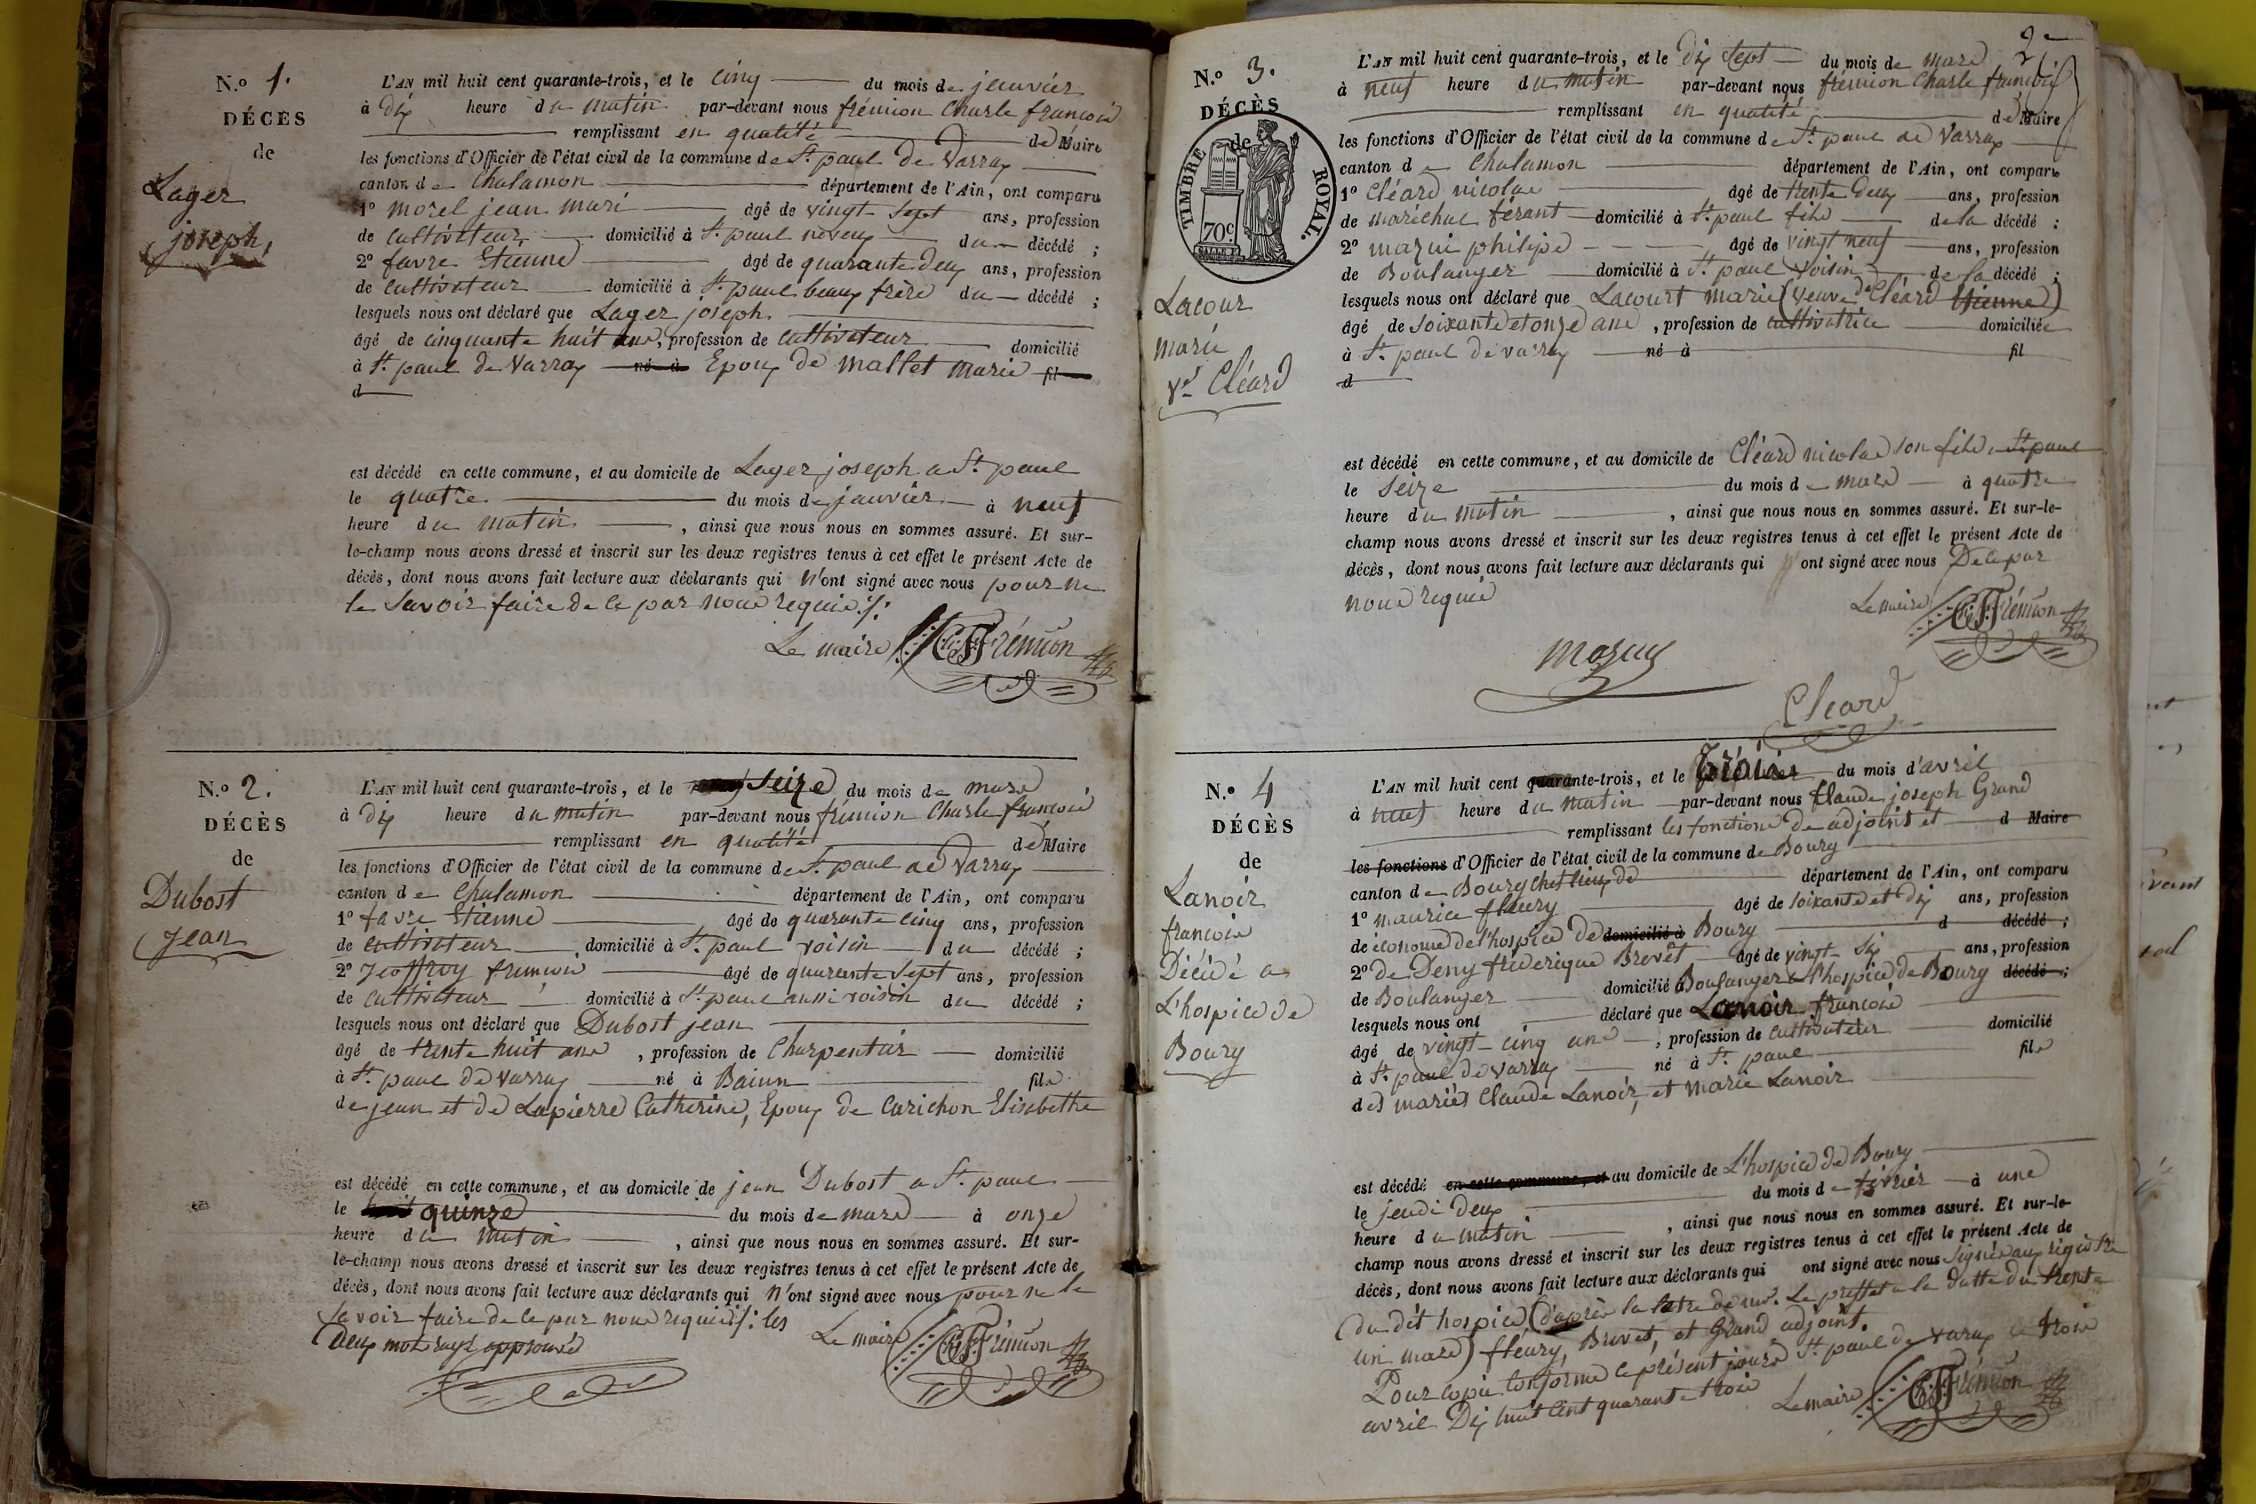 N.º 1.
DÉCÈS
de
Lager
joseph,
L'AN mil huit cent quarante-trois, et le cinq du mois de jeanvier
à dix heure du matin par-devant nous frémion Charle francois
remplissant en qualité de Maire
les fonctions d'Officier de l'état civil de la commune de St. paul de Varrax
canton de Chalamon département de l'Ain, ont comparu
1º morel jean mari âgé de vingt-sept ans, profession
de cultivateur domicilié à St. paul neveux du décédé ;
2º favre Etienne âgé de quarante deux ans, profession
de cultivateur domicilié à St. paul beaux frère du décédé ;
lesquels nous ont déclaré que Lager joseph.
âgé de cinquante huit ans, profession de cultivateur domicilié
à St. paul de Varrax né à Epoux de Mallet Marie fil
d
est décédé en cette commune, et au domicile de Lager joseph a St. paul
le quatre du mois de janvier à neuf
heure du matin, ainsi que nous nous en sommes assuré. Et sur-
le-champ nous avons dressé et inscrit sur les deux registres tenus à cet effet le présent Acte de
décès, dont nous avons fait lecture aux déclarants qui n'ont signé avec nous pour ne
le savoir faire de ce par nous requis ./.
Le maire CFFrémion
N.º 2.
DÉCÈS
de
Dubost
Jean
L'AN mil huit cent quarante-trois, et le seize du mois de mars
à dix heure du matin par-devant nous frémion Charle francois
remplissant en qualité de Maire
les fonctions d'Officier de l'état civil de la commune de St. paul de Varrax
canton de Chalamon département de l'Ain, ont comparu
1º favre Etienne âgé de quarante cinq ans, profession
de cultivateur domicilié à St. paul voisin du décédé ;
2º Jeoffroy francois âgé de quarante sept ans, profession
de cultivateur domicilié à St. paul aussi voisin du décédé ;
lesquels nous ont déclaré que Dubost jean
âgé de trente huit ans, profession de Charpentier domicilié
à St. paul de Varrax né à fils
de jean et de Lapierre Catherine, Epoux de Carichon Elisabethe
est décédé en cette commune, et au domicile de jean Dubost a St. paul
le quinze du mois de mars à onze
heure du matin, ainsi que nous nous en sommes assuré. Et sur-
le-champ nous avons dressé et inscrit sur les deux registres tenus à cet effet le présent Acte de
décès, dont nous avons fait lecture aux déclarants qui n'ont signé avec nous pour ne le
savoir faire de ce par nous requis ./. les
deux mots rayé approuvé
Le maire CFFrémion
2
N.º 3.
DÉCÈS
de
TIMBRE ROYAL.
70c.
Lacour
marie
Ve. Cléard
L'AN mil huit cent quarante-trois, et le dix sept du mois de mars
à neuf heure du matin par-devant nous frémion Charle francois
remplissant en qualité de Maire
les fonctions d'Officier de l'état civil de la commune de St. paul de Varrax
canton de Chalamon département de l'Ain, ont comparu
1º Cléard nicolas âgé de trente deux ans, profession
de maréchal férant domicilié à St. paul fils de la décédé ;
2º mazui philipe âgé de vingt neuf ans, profession
de Boulanger domicilié à St. paul voisin de la décédé ;
lesquels nous ont déclaré que Lacourt Marie (veuve de Cléard Etienne)
âgé de soixante et onze ans, profession de cultivatrice domiciliée
à St. paul de varrax né à fil
d
est décédé en cette commune, et au domicile de Cléard nicolas son fils, St. paul
le Seize du mois de mars à quatre
heure du matin, ainsi que nous nous en sommes assuré. Et sur-le-
champ nous avons dressé et inscrit sur les deux registres tenus à cet effet le présent Acte de
décès, dont nous avons fait lecture aux déclarants qui ont signé avec nous De ce par
nous requis
Le maire CFFrémion
Mazuy
Cleard
N.º 4
DÉCÈS
de
Lanoir
francois
Décédé a
L'hospice de
Bourg
L'AN mil huit cent quarante-trois, et le trois du mois d'avril
à neuf heure du matin par-devant nous Claude joseph Grand
remplissant les fonctions de adjoint et d Maire
les fonctions d'Officier de l'état civil de la commune de Bourg
canton de Bourg Chef lieux de département de l'Ain, ont comparu
1º maurice fleury âgé de soixante et dix ans, profession
de économe de l'hospice de domicilié à Bourg d décédé ;
2º de Deny fréderique Brevet âgé de vingt-six ans, profession
de Boulanger domicilié Boulanger a l'hospice de Bourg décédé ;
lesquels nous ont déclaré que Lanoir francois
âgé de vingt-cinq ans, profession de cultivateur domicilié
à St. paul de varrax né à St. paul fils
des mariés Claude Lanoir, et Marie Lanoir
est décédé en cette commune, et au domicile de L'hospice de Bourg
le jeudi deux du mois de février à une
heure du matin, ainsi que nous nous en sommes assuré. Et sur-le-
champ nous avons dressé et inscrit sur les deux registres tenus à cet effet le présent Acte de
décès, dont nous avons fait lecture aux déclarants qui ont signé avec nous Signé aux régistre
du dit hospice (d'après la lettre de mr. Le preffet a la datte du trente
un mars) fléury, Brevet, et Grand adjoint.
Pour copie conforme ce présent jour a St. paul de varax le trois
avril Dix huit cent quarante trois
Le maire CFFrémion